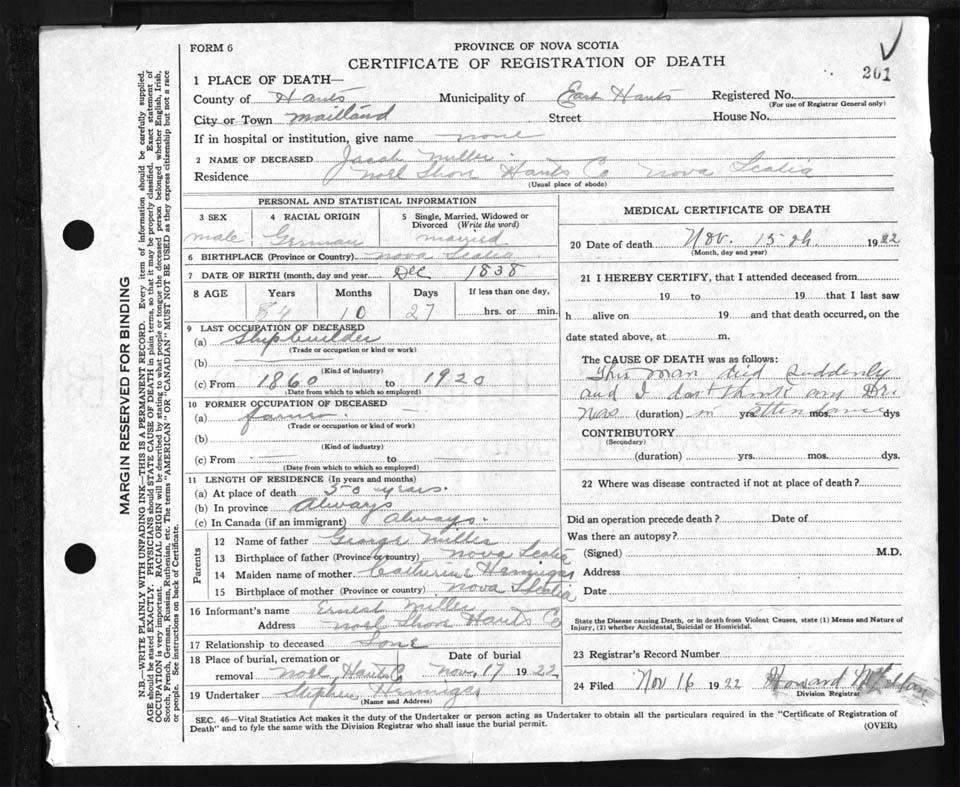 FORM 6
PROVINCE OF NOVA SCOTIA
CERTIFICATE OF REGISTRATION OF DEATH
201
MARGIN RESERVED FOR BINDING
N.B.—WRITE PLAINLY WITH UNFADING INK—THIS IS A PERMANENT RECORD. Every item of information should be carefully supplied.
AGE should be stated EXACTLY. PHYSICIANS should STATE CAUSE OF DEATH in plain terms, so that it may be properly classified. Exact statement of
OCCUPATION is very important. RACIAL ORIGIN will be described by stating to what people or tongue the deceased person belonged whether English, Irish,
Scotch, French, German, Russian, Ruthenian, etc. The terms "AMERICAN" OR "CANADIAN" MUST NOT BE USED as they express citizenship but not a race
or people. See instructions on back of Certificate.
1 PLACE OF DEATH—
County of Hants Municipality of East Hants Registered No.
(For use of Registrar General only)
City or Town Maitland Street House No.
If in hospital or institution, give name none
2 NAME OF DECEASED Jacob Miller
Residence Noel Shore Hants Co Nova Scotia
(Usual place of abode)
PERSONAL AND STATISTICAL INFORMATION
3 SEX 4 RACIAL ORIGIN 5 Single, Married, Widowed or Divorced (Write the word)
male German married
6 BIRTHPLACE (Province or Country) Nova Scotia
7 DATE OF BIRTH (month, day and year) Dec 1838
8 AGE Years Months Days If less than one day,
84 10 27 hrs. or min.
9 LAST OCCUPATION OF DECEASED
(a) Shipbuilder
(Trade or occupation or kind or work)
(b)
(Kind of industry)
(c) From 1860 to 1920
(Date from which to which so employed)
10 FORMER OCCUPATION OF DECEASED
(a) farmer
(Trade or occupation or kind of work)
(b)
(Kind of industry)
(c) From — to —
(Date from which to which so employed)
11 LENGTH OF RESIDENCE (In years and months)
(a) At place of death 50 years.
(b) In province Always
(c) In Canada (if an immigrant) always.
Parents
12 Name of father George Miller
13 Birthplace of father (Province or country) Nova Scotia
14 Maiden name of mother Catherine Hennigar
15 Birthplace of mother (Province or country) Nova Scotia
16 Informant's name Ernest Miller
Address Noel Shore Hants Co
17 Relationship to deceased Sone
18 Place of burial, cremation or removal Noel, Hants Co Date of burial Nov 17 1922
19 Undertaker Stephen Hennigar
(Name and Address)
MEDICAL CERTIFICATE OF DEATH
20 Date of death Nov. 15th 1922
(Month, day and year)
21 I HEREBY CERTIFY, that I attended deceased from
19 to 19 that I last saw
h alive on 19 and that death occurred, on the
date stated above, at m.
The CAUSE OF DEATH was as follows:
This man died suddenly
and I dont think any Dr.
was (duration) in yrs. attendance mos. dys
CONTRIBUTORY
(Secondary)
(duration) yrs. mos. dys.
22 Where was disease contracted if not at place of death?
Did an operation precede death? Date of
Was there an autopsy?
(Signed) M.D.
Address
Date
State the Disease causing Death, or in death from Violent Causes, state (1) Means and Nature of
Injury, (2) whether Accidental, Suicidal or Homicidal.
23 Registrar's Record Number
24 Filed Nov 16 1922 Howard
Division Registrar
SEC. 46—Vital Statistics Act makes it the duty of the Undertaker or person acting as Undertaker to obtain all the particulars required in the "Certificate of Registration of
Death" and to fyle the same with the Division Registrar who shall issue the burial permit.
(OVER)